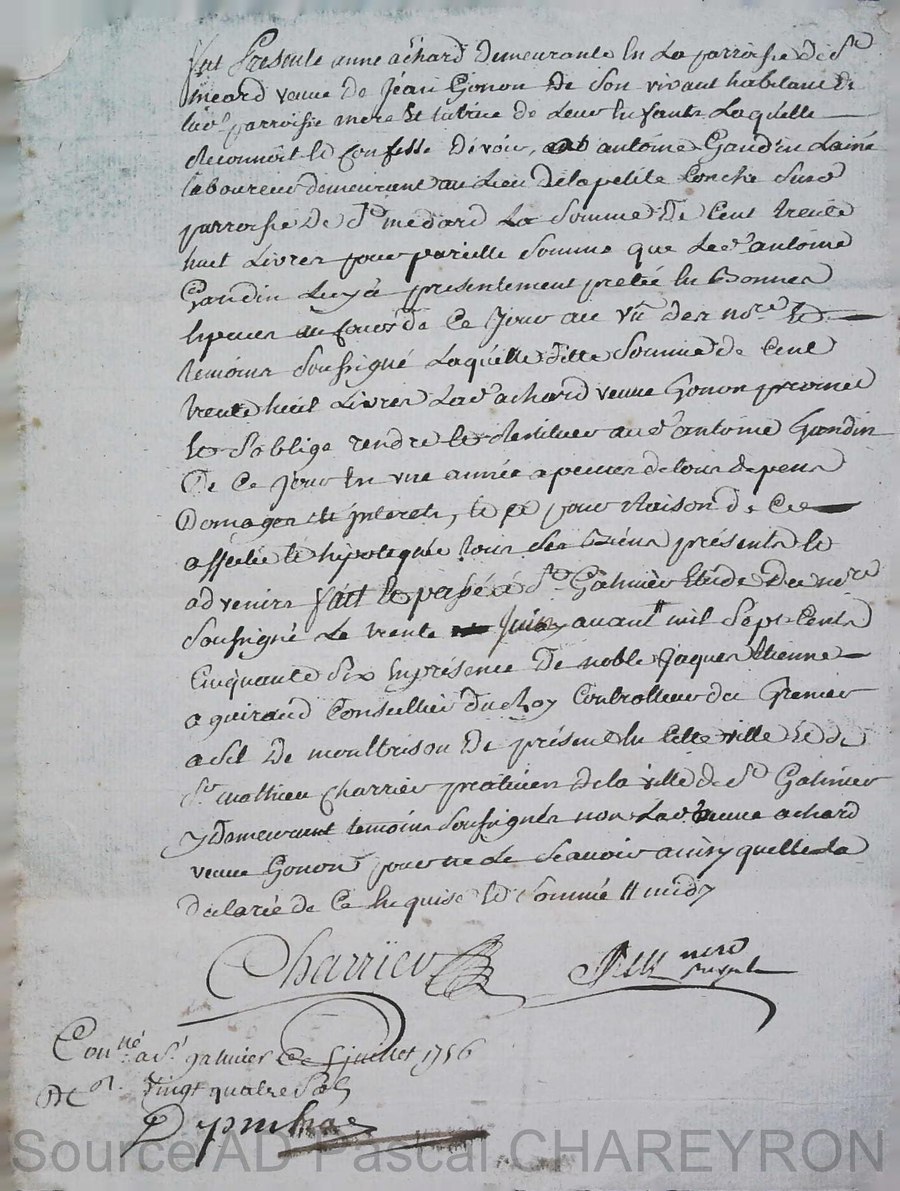 fut presente anne achard demeurante en La parroisse de St
meard veuve de jean Gonon De Son vivant habitant de
parroisse mere et tutrice de Leur enfants Laquelle
de devoir, a antoine Gaudin Lainé
laboureur demeurant au Lieu de la petite Conche Susd
parroisse De St medard La Somme De Cent trente
huit Livres pour pareille Somme que Led antoine
Gaudin Luy a presentement pretée en Bonnes
especes au Cours de Ce Jour au des nore et
temoins Soussigné Laquelle ditte Somme de Cent
trente huit Livres Lad achard veuve Gonon promet
et S'oblige rendre et Restituer aud antoine Gaudin
De Ce jour en une année a peines de tous depens
Domages et interets, et pour Raison de Ce
affectée et hipotequée tous Ses Biens présents et
advenirs fait et passé a St Galmier Etude du nore
Soussigné Le trente Juin avant mil Sept Cents
Cinquante Six En présence De noble Jaques Etienne
aguiraud Conseiller du Roy Controlleur du Grenier
a Sel De montbrison De présent en Cette ville et de
Sr mathieu Charrier praticien de la ville de St Galmier
y Demeurant temoins Soussignés non Lad achard
veuve Gonon pour ne Le Scavoir ainsy quelle La
declarée de Ce Enquise et Sommé midy
Charrier
nore
royal
Conné a St galmier Ce juillet 1756
vingt quatre Sols
Source AD Pascal CHAREYRON